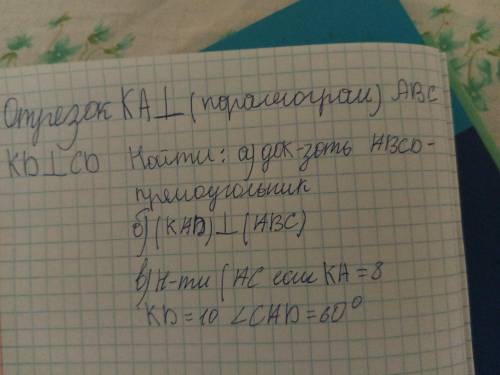 Отрезок KA⊥(паралеограм) ABC
KD⊥CD Найти: а) док-зать ABCD-
прямоугольник
б) (KAD)⊥(ABC)
в) Н-ти (AC если KA=8
KD=10 ∠CAD=60°